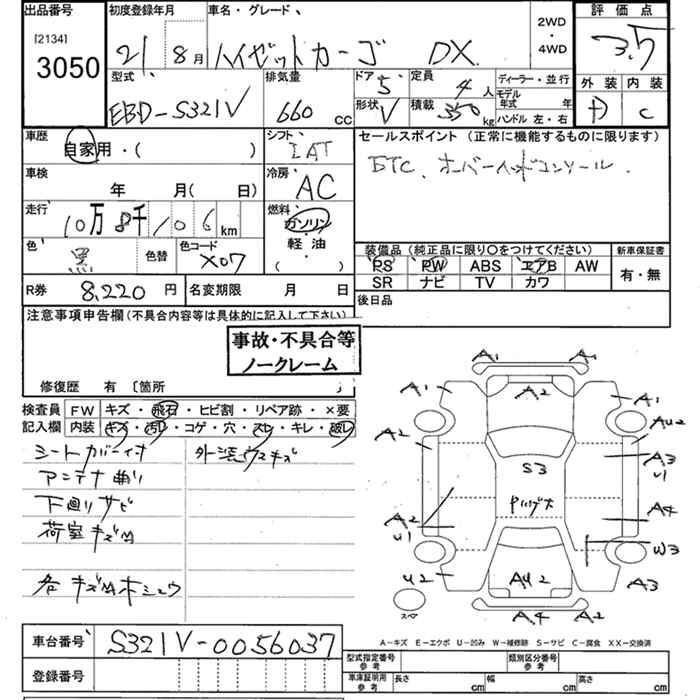 出品番号
[2134]
3050
初度登録年月
21年 8月
車名・グレード
ハイゼットカーゴ DX
2WD
・
4WD
評価点
3.5
外装 内装
D C
型式
EBD-S321V
排気量
660 cc
ドア 5
形状 V
定員 4人
積載 350 kg
ディーラー・並行
モデル年式 年
ハンドル 左・右
車歴
自家用・( )
シフト
IAT
冷房
AC
車検
年 月( 日)
走行
10万 8千 106 km
燃料
ガソリン
・
軽油
( )
色
黒
色替
色コード
X07
セールスポイント (正常に機能するものに限ります)
ETC、オーバーヘッドコンソール.
装備品 (純正品に限り○をつけてください)
PS PW ABS エアB AW
SR ナビ TV カワ
新車保証書
有・無
R券 8,220 円
名変期限 月 日
後日品
注意事項申告欄(不具合内容等は具体的に記入して下さい)
事故・不具合等
ノークレーム
修復歴 有 〔箇所 〕
検査員
記入欄
FW キズ・飛石・ヒビ割・リペア跡・×要
内装 キズ・汚レ・コゲ・穴・スレ・キレ・破レ
シートカバー付
外装ウスキズ
アンテナ曲り
下廻りサビ
荷室キズM
各キズM
A1 A1
A1 A2 A1
A2 AU2
S3 A3
U1
A2 A4
U1 W3
U2 AU2 A3
A4 A2
スペ
A-キズ E-エクボ U-凹み W-補修跡 S-サビ C-腐食 XX-交換済
車台番号 S321V-0056037
登録番号
型式指定番号
参考
類別区分番号
参考
車庫証明用
参考
長さ cm 幅 cm 高さ cm